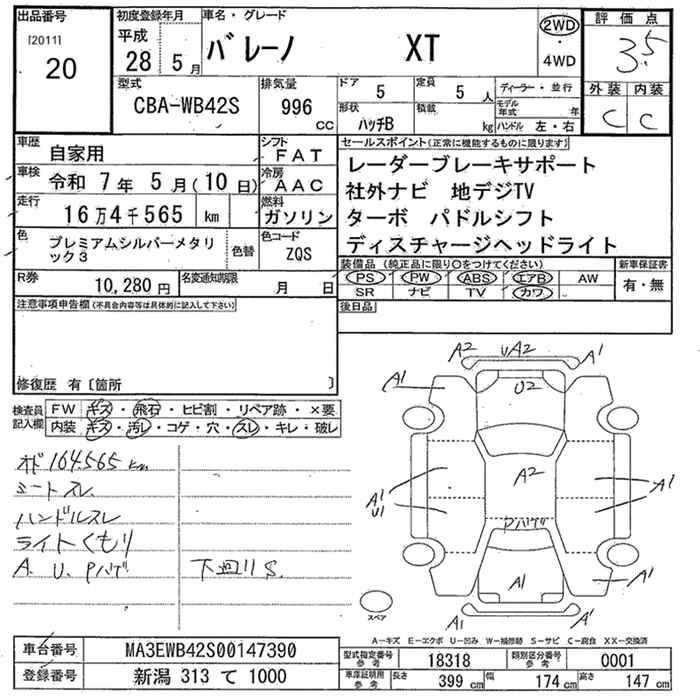 出品番号
[2011]
20
初度登録年月
平成
28 5月
車名・グレード
バレーノ XT
2WD
・
4WD
評価点
3.5
外装 内装
C C
型式
CBA-WB42S
排気量
996
cc
ドア
5
定員
5 人
形状
ハッチB
積載
kg
ディーラー・並行
モデル年式 年
ハンドル 左・右
車歴
自家用
シフト
FAT
車検
令和 7年 5月(10日)
冷房
AAC
走行
16万4千565 km
燃料
ガソリン
色
プレミアムシルバーメタリック3
色替
色コード
ZQS
R券
10,280円
名変通知期限
月 日
セールスポイント(正常に機能するものに限ります)
レーダーブレーキサポート
社外ナビ 地デジTV
ターボ パドルシフト
ディスチャージヘッドライト
装備品(純正品に限り○をつけてください)
PS PW ABS エアB AW
SR ナビ TV カワ
新車保証書
有・無
後日品
注意事項申告欄(不具合内容等は具体的に記入して下さい)
修復歴 有〔箇所 〕
検査員記入欄
FW キズ・飛石・ヒビ割・リペア跡・×要
内装 キズ・汚レ・コゲ・穴・スレ・キレ・破レ
オド 164.565 km
シートスレ
ハンドルスレ
ライトくもり
A. U. Pハゲ 下廻りS.
A2 UA2 A1
A1 U2
A2
A1
U1
A1
Pハゲ
A1 A1
A1
スペア
A-キズ E-エクボ U-凹み W-補修跡 S-サビ C-腐食 XX-交換済
車台番号
MA3EWB42S00147390
登録番号
新潟 313 て 1000
型式指定番号
参考
18318
類別区分番号
参考
0001
車庫証明用
参考
長さ 399 cm 幅 174 cm 高さ 147 cm